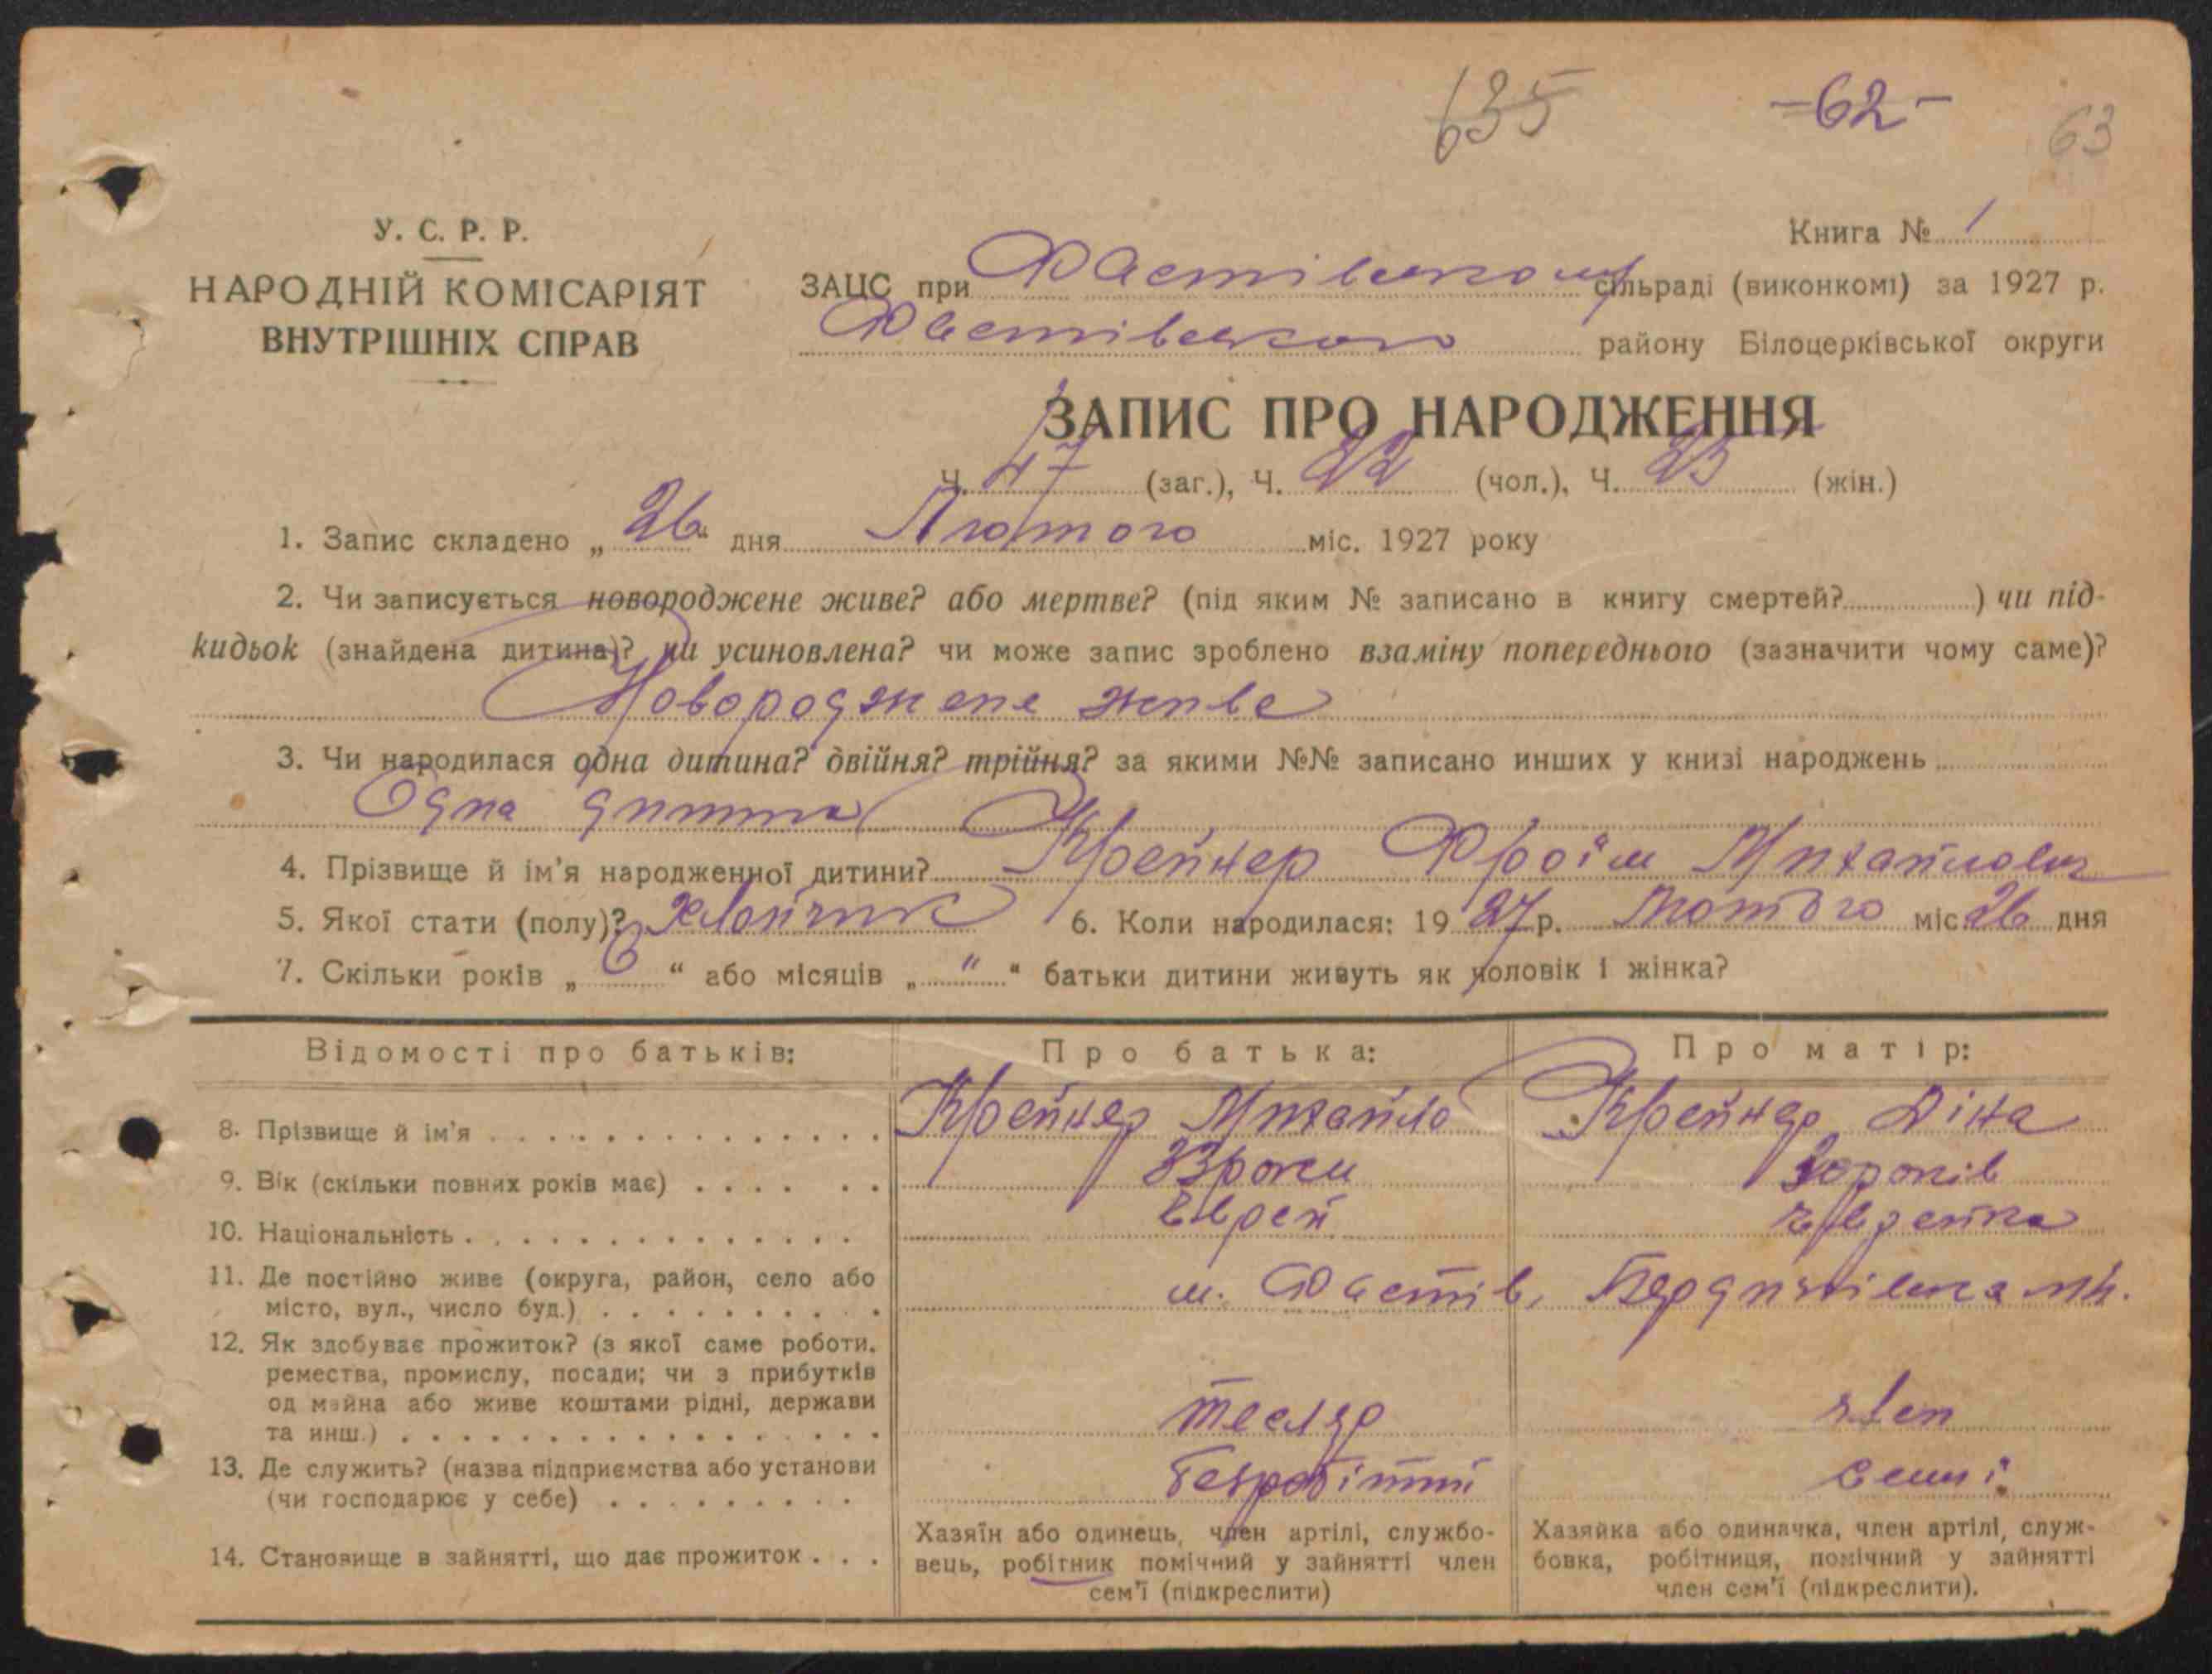 635 -62- 63
У. С. Р. Р.
НАРОДНІЙ КОМІСАРІЯТ
ВНУТРІШНІХ СПРАВ
Книга № 1
ЗАЦС при Фастівському сільраді (виконкомі) за 1927 р.
Фастівського району Білоцерківської округи
ЗАПИС ПРО НАРОДЖЕННЯ
Ч. 47 (заг.), Ч. 22 (чол.), Ч. 25 (жін.)
1. Запис складено „26“ дня Лютого міс. 1927 року
2. Чи записується новороджене живе? або мертве? (під яким № записано в книгу смертей? ) чи під-
кидьок (знайдена дитина)? чи усиновлена? чи може запис зроблено взаміну попереднього (зазначити чому саме)?
Новороджене живе
3. Чи народилася одна дитина? двійня? трійня? за якими №№ записано инших у книзі народжень
Одна дитина
4. Прізвище й ім'я народженної дитини? Крейнер Фроїм Михайлович
5. Якої стати (полу)? Хлопчик 6. Коли народилася: 1927 р. Лютого міс. 26 дня
7. Скільки років „6“ або місяців „ " “ батьки дитини живуть як чоловік і жінка?
Відомості про батьків: Про батька: Про матір:
8. Прізвище й ім'я Крейнер Михайло Крейнер Діна
9. Вік (скільки повних років має) 33 роки років
10. Національність Єврей Єврейка
11. Де постійно живе (округа, район, село або
місто, вул., число буд.) м. Фастів, Бердичівська
12. Як здобуває прожиток? (з якої саме роботи.
ремества, промислу, посади; чи з прибутків
од майна або живе коштами рідні, держави
та инш.) тесляр член
13. Де служить? (назва підприємства або установи
(чи господарює у себе) безробітний семї
14. Становище в зайнятті, що дає прожиток
Хазяїн або одинець, член артілі, службо-
вець, робітник помічний у зайнятті член
сем'ї (підкреслити)
Хазяйка або одиначка, член артілі, служ-
бовка, робітниця, помічний у зайнятті
член сем'ї (підкреслити).